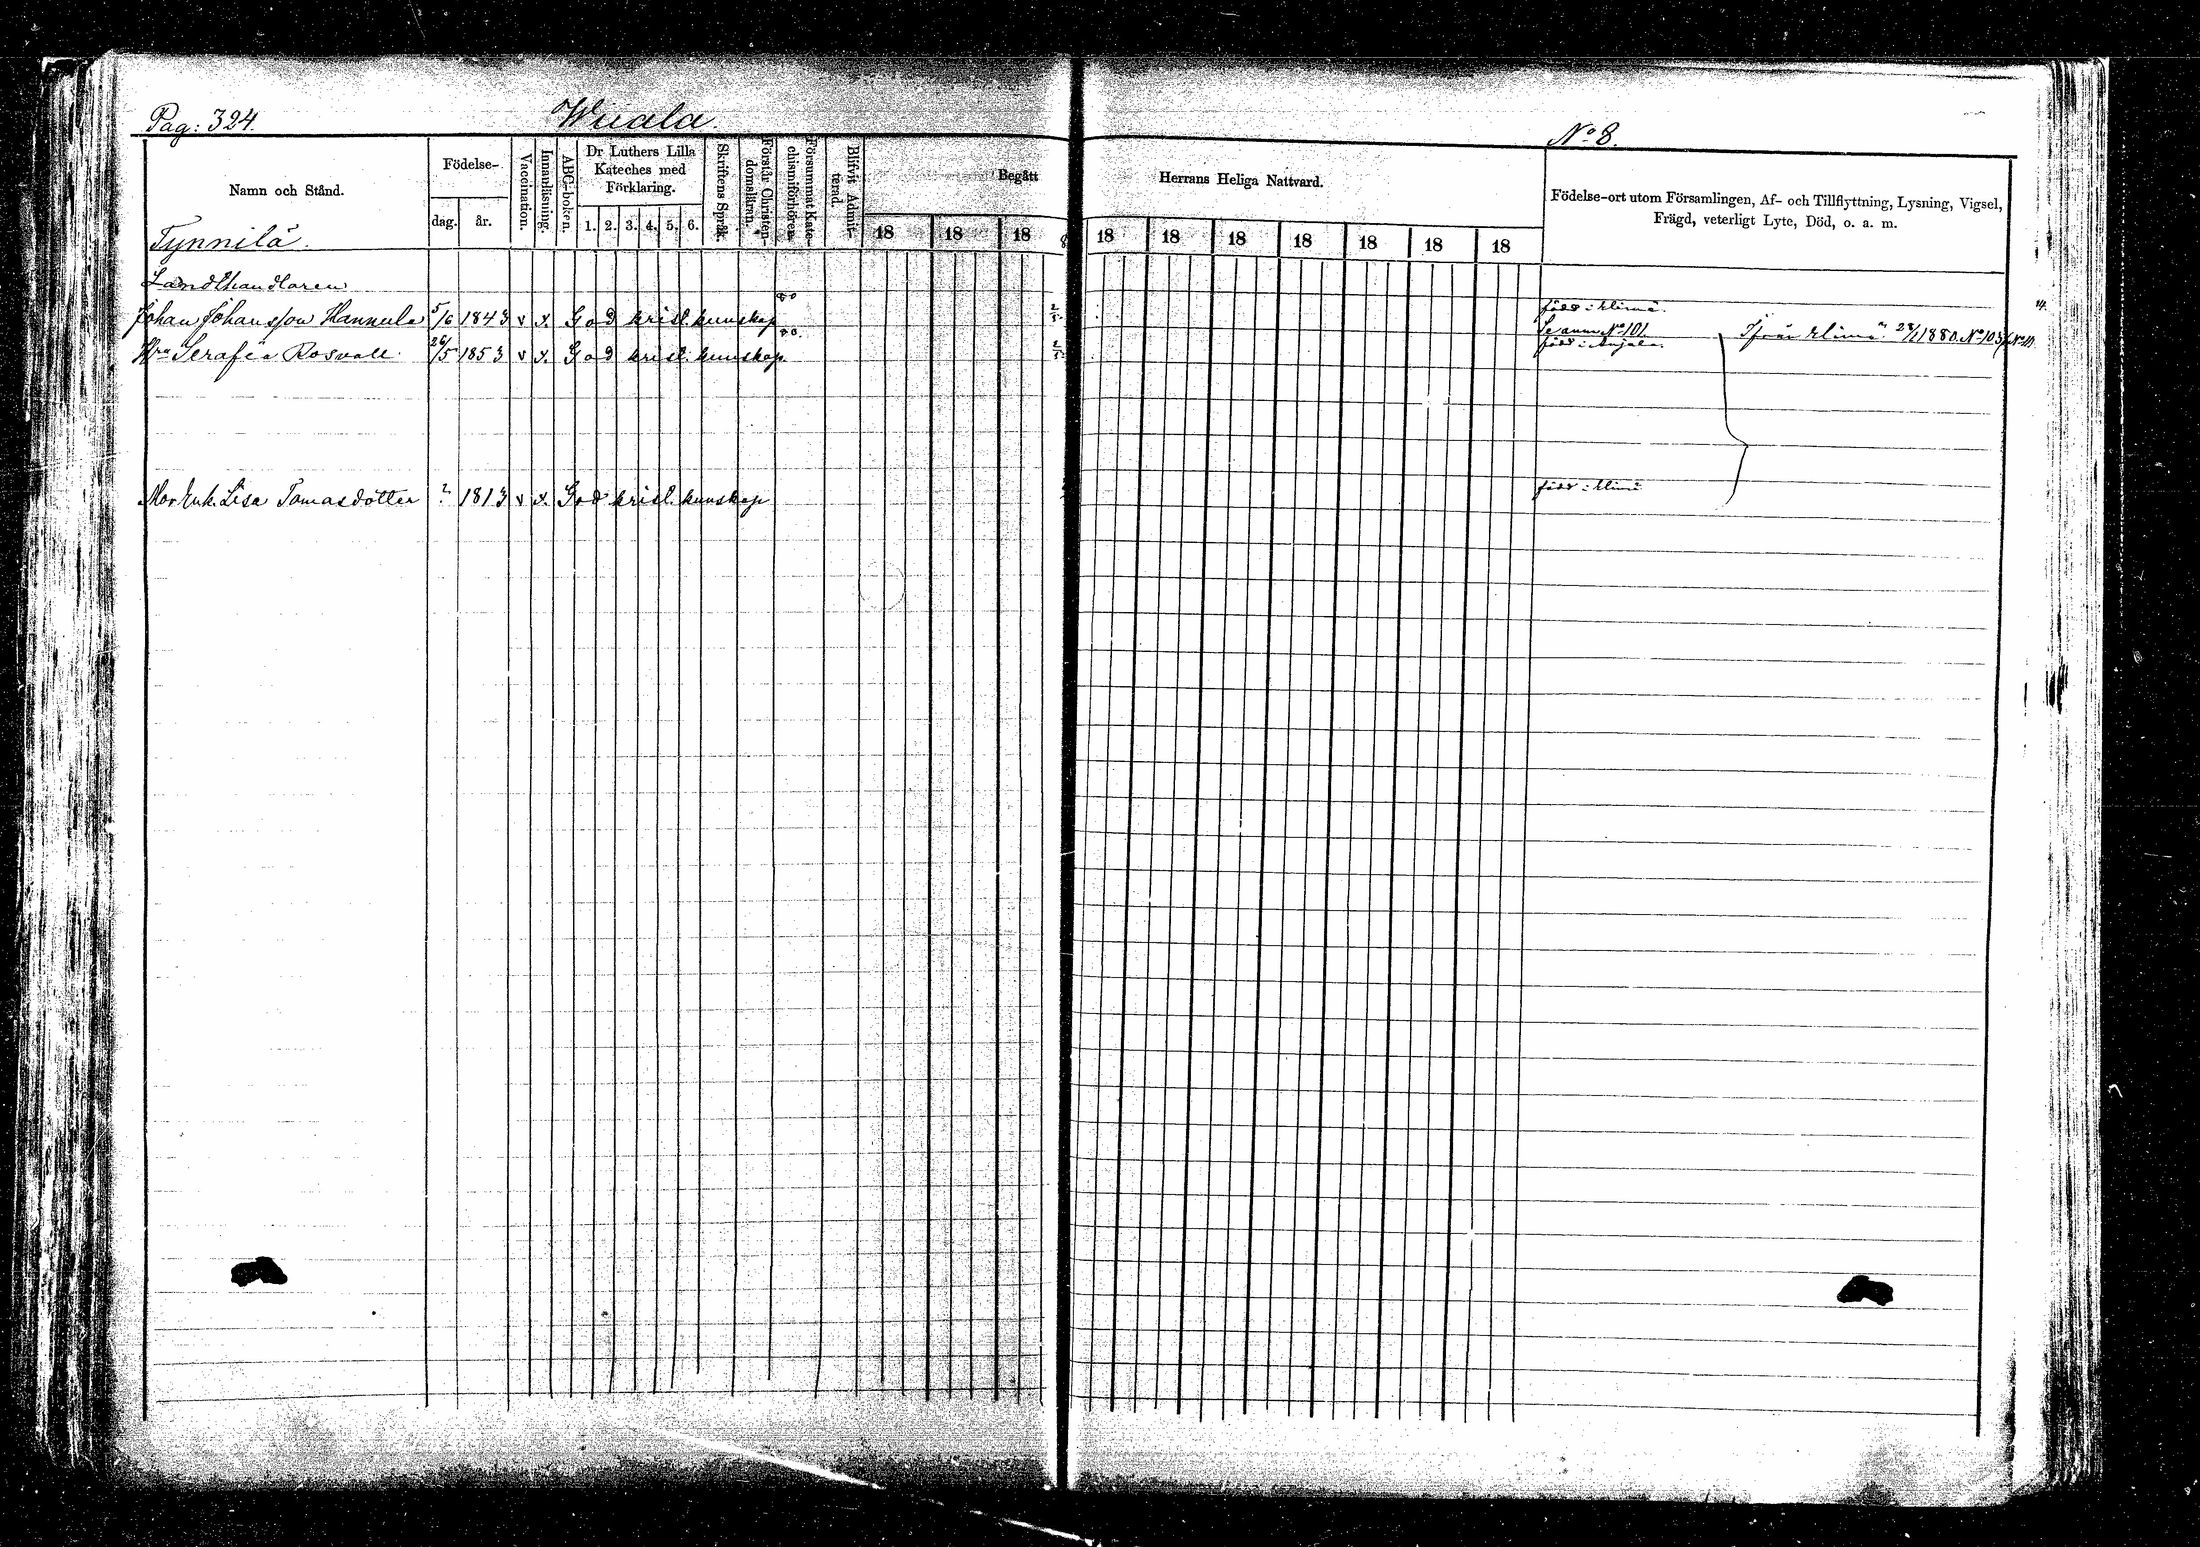 Pag: 324.
Wuala.
No 8.
Namn och Stånd.
Födelse-
dag.
år.
Vaccination.
Innanläsning.
ABC-boken.
Dr Luthers Lilla
Kateches med
Förklaring.
1. 2. 3. 4. 5. 6.
Skriftens Språk.
Förstår Christen-
domsläran.
Försummat Kate-
chismiförhören.
Blifvit Admit-
terad.
Begått
Herrans Heliga Nattvard.
18 18 18 18 18 18 18 18 18 18
Födelse-ort utom Församlingen, Af- och Tillflyttning, Lysning, Vigsel,
Frägd, veterligt Lyte, Död, o. a. m.
Tynnilä.
Landthandlaren
Johan Johansson Hannula 5/6 1843 v x. God kristl. kunskap född i Elimä.
Se anm No 101
Hru Serafia Rosvall 26/5 1853 v x. God kristl. kunskap. född i Anjala. Ifrån Elimä 28/1 1880. No 103
Mor Enk. Lisa Tomasdotter ? 1813 v x. God kristl. kunskap född i Elimä